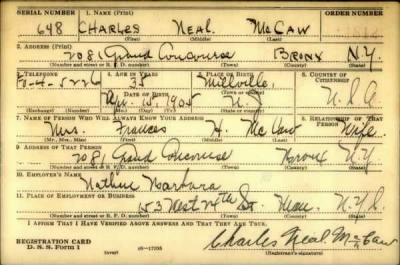 SERIAL NUMBER 1. NAME (Print) ORDER NUMBER
648 CHARLES NEAL McCAW
(First) (Middle) (Last)
2. ADDRESS (Print)
2081 Grand Concourse BRONX N.Y.
(Number and street or R. F. D. number) (Town) (County) (State)
3. TELEPHONE 4. AGE IN YEARS 5. PLACE OF BIRTH 6. COUNTRY OF CITIZENSHIP
38 Millville
15, 1905 N. J. U.S.A.
7. NAME OF PERSON WHO WILL ALWAYS KNOW YOUR ADDRESS 8. RELATIONSHIP OF THAT PERSON
Mrs. Frances H. McCaw Wife
9. ADDRESS OF THAT PERSON
2081 Grand Concourse Bronx N.Y.
(Number and street or R. F. D. number) (Town) (County) (State)
10. EMPLOYER'S NAME
11. PLACE OF EMPLOYMENT OR BUSINESS
153 West St. N.Y.C.
(Number and street or R. F. D. number) (Town) (County) (State)
I AFFIRM THAT I HAVE VERIFIED ABOVE ANSWERS AND THAT THEY ARE TRUE.
REGISTRATION CARD Charles Neal McCaw
D. S. S. FORM 1 (over) (Registrant's signature)